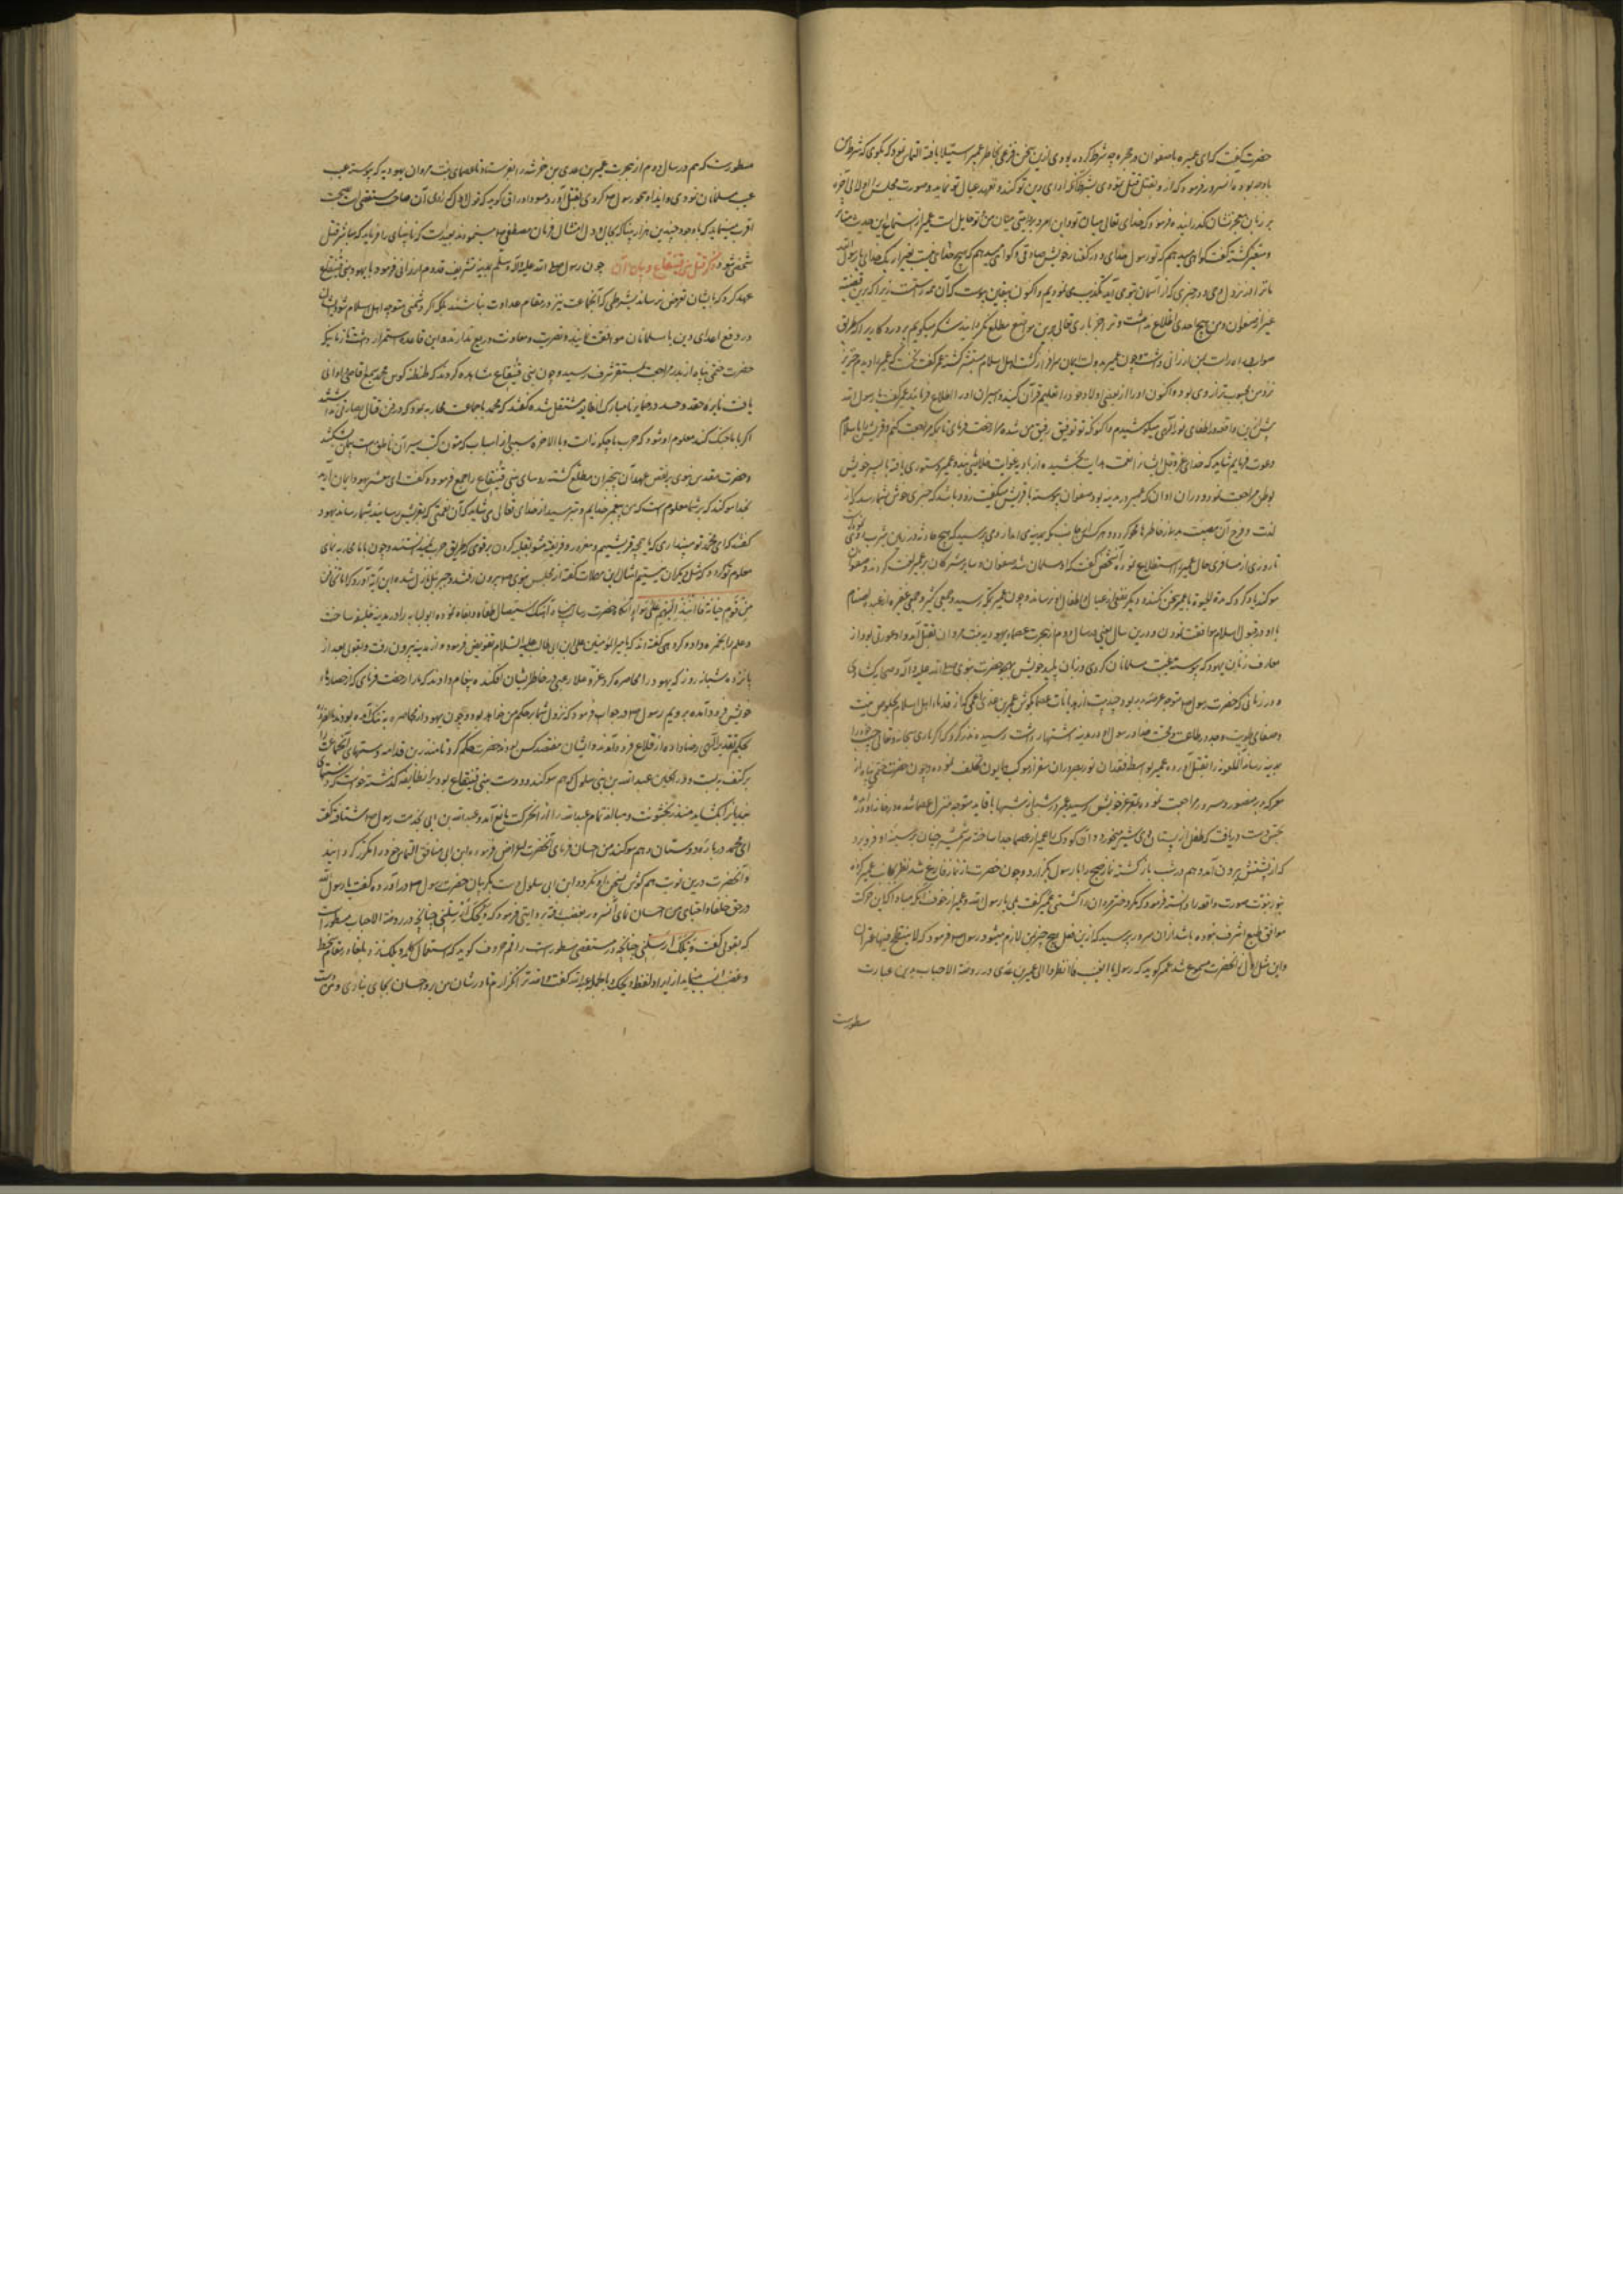 حضرت گفت که ای عمیر با صفوان در حجره چه شرط کرده بودی ازین سخن فزعی بخاطر عمیر استیلا یافته التماس نمود که بگوی که شرط من
با او چه بود آنسرور فرمود که از و بقتل من قبول نمودی بشرط آنکه ادای دین تو کند و تعهد عیال تو نماید و صورت مجلس
بر زبان معجز نشان گذرانیده فرمود که خدای تعالی میان تو و این امر میان من و تو حایل است عمیر از استماع این حدیث متأثر
و متغیر گشته گفت گواهی میدهم که تو رسول خدای و در گفتار خویش صادقی و گواهی میدهم که هیچ خدای نیست بغیر از یک خدای یا رسول الله
ما ترا در نزول وحی و در خبری که از آسمان بتو می آید تکذیب می نمودیم و اکنون بیقین پیوست که آن همه راست زیرا که برین قضیه
غیر از صفوان و من هیچ احدی اطلاع نداشت و ترا جز باری تعالی برین مواضع مطلع نگردانید شکر میگویم پروردگاری را که طریق
صواب بمن ارزانی داشت و چون عمیر بدولت ایمان سرافراز گشت اهل اسلام مستبشر گشتند عمر گفت که عمیر را دیدم خنزیر
نزد من محبوبتر از وی بود و اکنون او را از بعضی اولاد خود را تعلیم قرآن کنید و اسیران او را اطلاع فرمایند عمیر گفت یا رسول الله
پیش ازین در اطفای نور الهی میکوشیدم و اکنون که توفیق رفیق من شده مرا رخصت فرمای تا بمکه مراجعت کنم و قریش را باسلام
دعوت نمایم شاید که خدای عز و جل ایشانرا نعمت هدایت بخشیده از بادیه غوایت خلاصی بدهد و عمیر دستوری یافته با پسر خویش
بوطن مراجعت نمود و در آن اوان که عمیر در مدینه بود صفوان پیوسته با قریش میگفت زود باشد که خبری خوش بشما رسد که از
لذت و فرح آن مصیبت بدر از خاطرها محو گردد و هر کس که بجانب مکه از مدینه می آمد از وی میپرسید که هیچ حادثه در زمین یثرب
تا روزی از مسافری حال عمیر استطلاع نمود آن شخص گفت که او مسلمان شد صفوان و سایر مشرکان بر عمیر لعنت کردند و صفوان
سوگند یاد کرد که مدة الحیوة با عمیر سخن نکند و دیگر نفعی از عیال و اطفال او نرساند و چون عمیر بمکه رسید جمعی کثیر و جمعی غفیر از عبده اصنام
با او در قبول اسلام موافقت نمودند و درین سال یعنی سال دوم از هجرت عصماء یهودیه بنت مروان بقتل آمد و او عورتی بود از
معارف زنان یهود که پیوسته عیب مسلمانان کردی و زبان پلید خویش بهجو حضرت نبوی صلی الله علیه و آله وسلم گشادی
و در زمانی که حضرت رسول ص متوجه غزوه بدر بود چند بیت از هذیانات عصما بگوش عمیر بن عدی اعمی که از قدماء اهل اسلام بخلوص نیت
و صفای طویت و جد در طاعت و محبت خدا و رسول او در مدینه اشتهار داشت رسیده نذر کرد که اگر باری سبحانه و تعالی
بمدینه رساند آن ملعونه را بقتل آورد و عمیر بواسطه فقدان نور بصر در آن سفر از موکب همایون تخلف نموده و چون حضرت ختمی پناه از
معرکه بدر منصور و مسرور مراجعت نموده بمقر عز خویش رسید عمیر در شبی از شبها با قاید متوجه منزل عصما شده در خانه او
بجس دست دریافت که طفل از پستان وی شیر میخورد و آن کودک را عمیر از عصما جدا ساخته سر شمشیر چنان بر سینه او فرو برد
که از پشتش بیرون آمد و هم در شب بازگشته نماز صبح را با رسول بگذارد و چون حضرت از نماز فارغ شد نظر بجانب عمیر کرده
بنور نبوت صورت واقعه را دانسته فرمود که مگر دختر مروان را کشتی عمیر گفت بلی یا رسول الله و عمیر از خوف آنکه مبادا که این حرکت
موافق طبع اشرف نبوده باشد از آن سرور پرسید که ازین فعل هیچ چیز بمن لازم میشود رسول ص فرمود که لا ینتطح فیها عنزان
و این مثل اول از آنحضرت مسموع شد عمیر گوید که رسول با اصحاب فرمود انظروا الی عمیر بن عدی و در روضة الاحباب بدین عبارت
مسطورست
مسطورست که هم در سال دوم از هجرت عمیر بن عدی بن خرشه را بفرستاد تا عصمای بنت مروان یهودیه که پیوسته عیب
مسلمانان نمودی و ایذا و هجو رسول ص کردی بقتل آورد مسود اوراق گوید که قول اول که صاحب مستقصی است بصحت
اقرب مینماید که با وجود چندین هزار بینا که بجان و دل امتثال فرمان مصطفی ص مینمودند بعیدست که نابینای را فرماید که مباشر قتل
شخصی شود ذکر قتل بنی قینقاع و بیان آن چون رسول صلی الله علیه و آله وسلم بمدینه تشریف قدوم ارزانی فرمود با یهود بنی قینقاع
عهد کرد که بایشان تعرض نرساند بشرطی که آنجماعت نیز در مقام عداوت نباشند بلکه اگر دشمنی متوجه اهل اسلام شود ایشان
در دفع اعدای دین با مسلمانان موافقت نمایند و نصرت و معاونت دریغ ندارند و این قاعده استمرار داشت تا زمانیکه
حضرت ختمی پناه از بدر مراجعت بمستقر شرف رسید و چون بنی قینقاع مشاهده کردند که طنطنه کوس محمد بسمع قاصی و دانی
یافت نایره حقد و حسد در ضمایر نامبارک آنطایفه مشتعل شده گفتند که محمد با جماعت محاربه نمود که در فن قتال مهارتی نداشتند
اگر با ما جنگ کند معلوم او شود که حرب ما چگونه است و بالاخره بسببی از اسباب که متون کتب سیر آن ناطق است پیمان بشکستند
و حضرت مقدس نبوی بر نقض عهد آن بیخبران مطلع گشته رؤسای بنی قینقاع را جمع فرمود و گفت ای معشر یهود ایمان آرید
بخدا سوگند که بر شما معلوم است که من پیغمبر خدایم و بترسید از خدای تعالی می شاید که آن نقمتی که بقریش رسانید بشما رساند یهود
گفتند که ای محمد تو میپنداری که ما همچو قریشیم مغرور و فریفته مشو بغلبه کردن بر قومی که طریق حرب نمیدانستند و چون با ما محاربه نمای
معلوم تو گردد که مثل دیگران نیستیم امثال این مهملات گفته از مجلس نبوی ص بیرون رفتند و جبرئیل نازل شده این آیه آورد که و اما تخافن
من قوم خیانة فانبذ الیهم علی سواء آنگاه حضرت رسالت پناه آهنگ استیصال طغاة و بغاة نموده ابولبابه را در مدینه خلیفه ساخت
و علم را بحمزه داده و گروهی گفته اند که بامیرالمومنین علی بن ابی طالب علیه السلام تفویض فرمود و از مدینه بیرون رفت و بقولی بعد از
پانزده شبانه روز که یهود را محاصره کرد عز و علا رعبی در خاطر ایشان افکنده پیغام دادند که ما را رخصت فرمای که از حصارهای
خویش فرود آمده برویم رسول ص در جواب فرمود که نزول شما بر حکم من خواهد بود و چون یهود از محاصره بتنگ آمده بودند بالضروره
بحکم تقدیر الهی رضا داده از قلاع فرود آمدند و ایشان هفتصد کس بودند حضرت حکم کرد تا منذر بن قدامه دستهای آنجماعت را
بر کتف ببست و در آن حین عبدالله بن ابی سلول که هم سوگند و دوست بنی قینقاع بود بر آنطایفه گذشته خواست که دستهای
بندیانرا بگشاید منذر بخشونت و مبالغه تمام عبدالله را از آن حرکت مانع آمد و عبدالله بن ابی بخدمت رسول ص شتافته گفت
ای محمد درباره دوستان و هم سوگند من احسان فرمای آنحضرت اعراض فرمود و ابن ابی منافق التماس خود را مکرر گردانید
و آنحضرت درین نوبت هم گوش بسخن او نکرد و ابن ابی سلول دست بگریبان حضرت رسول ص درآورده گفت یا رسول الله
در حق حلفا و احبای من احسان نمای آنسرور بغضب رفته بروایتی فرمود که ویحک ارسلنی چنانچه در روضة الاحباب مسطورست
که بقولی گفت ویلک ارسلنی چنانچه در مستقصی مسطورست راقم حروف گوید که استعمال کلمه ویلک نزد بلغا در مقام سخط
و غضب انسب مینماید از ایراد لفظ ویحک و بالجمله عبدالله گفت والله ترا نگذارم تا در شان من بر و احسان بجای نیاری و منت